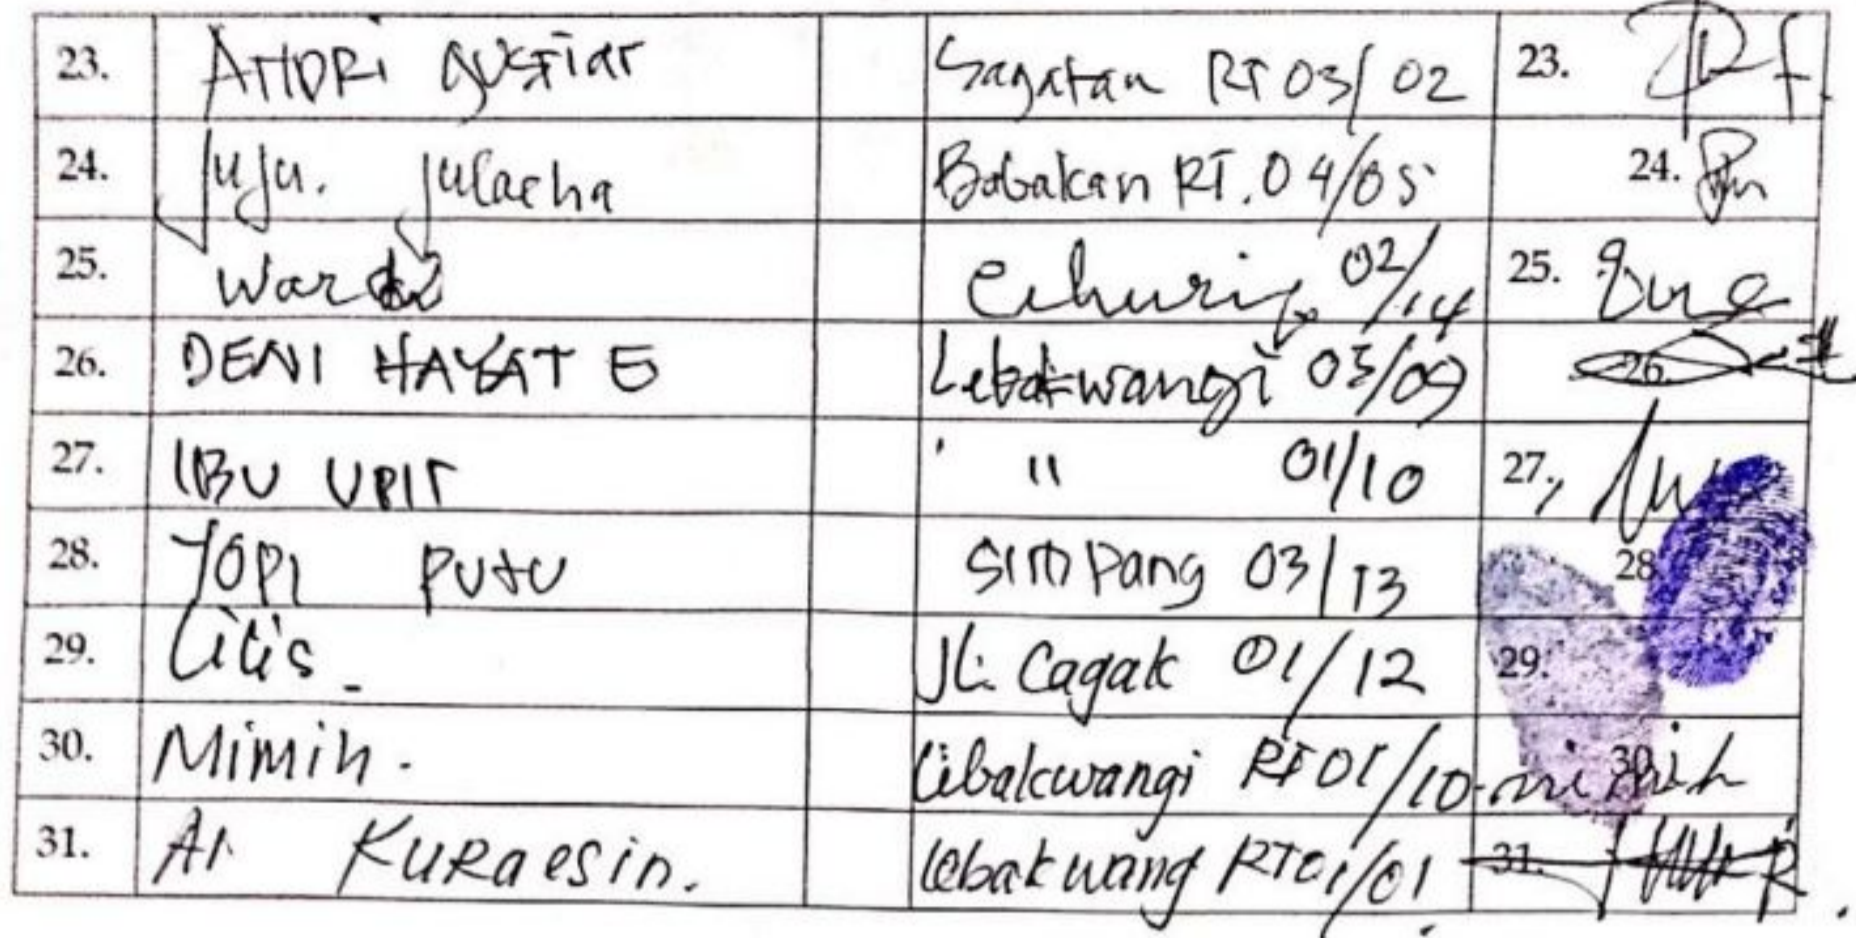 23. ANDRI GUSTIAR Sagatan RT 03/02 23.
24. Juju. Julaeha Babakan RT. 04/05 24.
25. 02/14 25.
26. DENI HAYAT E Lebakwangi 03/09 26.
27. IBU UPIT " 01/10 27.
28. YOPI PUTU SIMPang 03/13 28
29. Titis_ JL. Cagak 01/12 29.
30. Mimih. Lebakwangi RT 01/10 30. mimih
31. AI KURaesin. Lebakwang RT01/01 31.